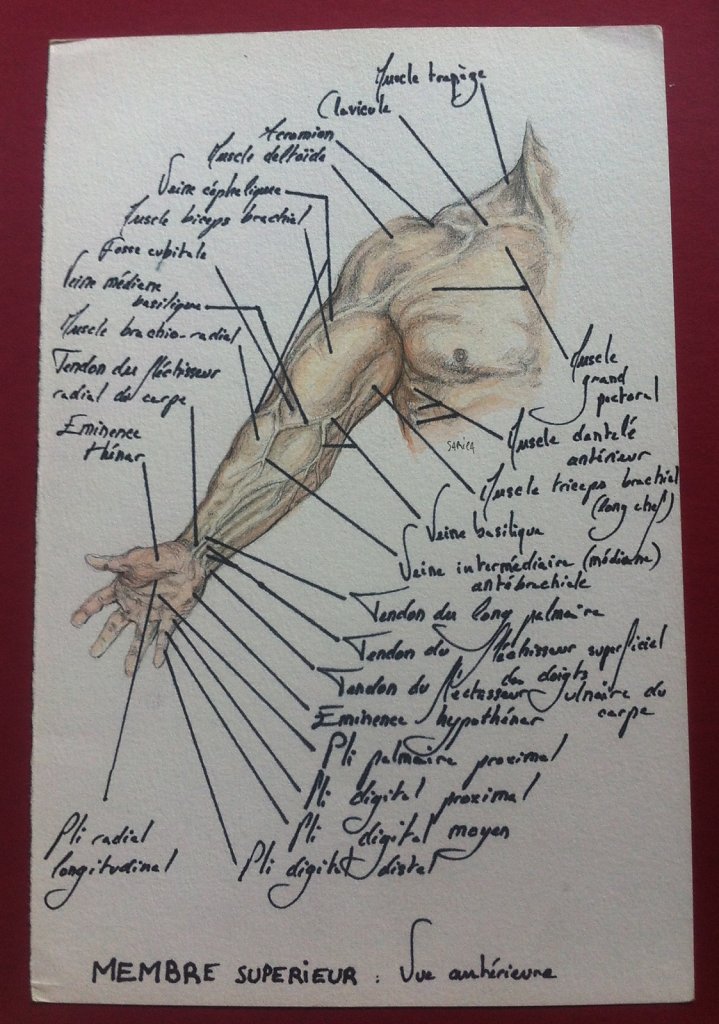 Muscle trapèze
Clavicule
Acromion
Muscle deltoïde
Veine céphalique
Muscle biceps brachial
Fosse cubitale
Veine médiane
basilique
Muscle brachio-radial
Tendon du fléchisseur
radial du carpe
Eminence
thénar
Muscle
grand
pectoral
Muscle dentelé
antérieur
Muscle triceps brachial
(long chef)
Veine basilique
Veine intermédiaire (médiane)
antébrachiale
Tendon du long palmaire
Tendon du fléchisseur superficiel
des doigts
Tendon du fléchisseur ulnaire du
carpe
Eminence hypothénar
Pli palmaire proximal
Pli digital proximal
Pli digital moyen
Pli digital distal
Pli radial
longitudinal
SARICA
MEMBRE SUPERIEUR : Vue antérieure